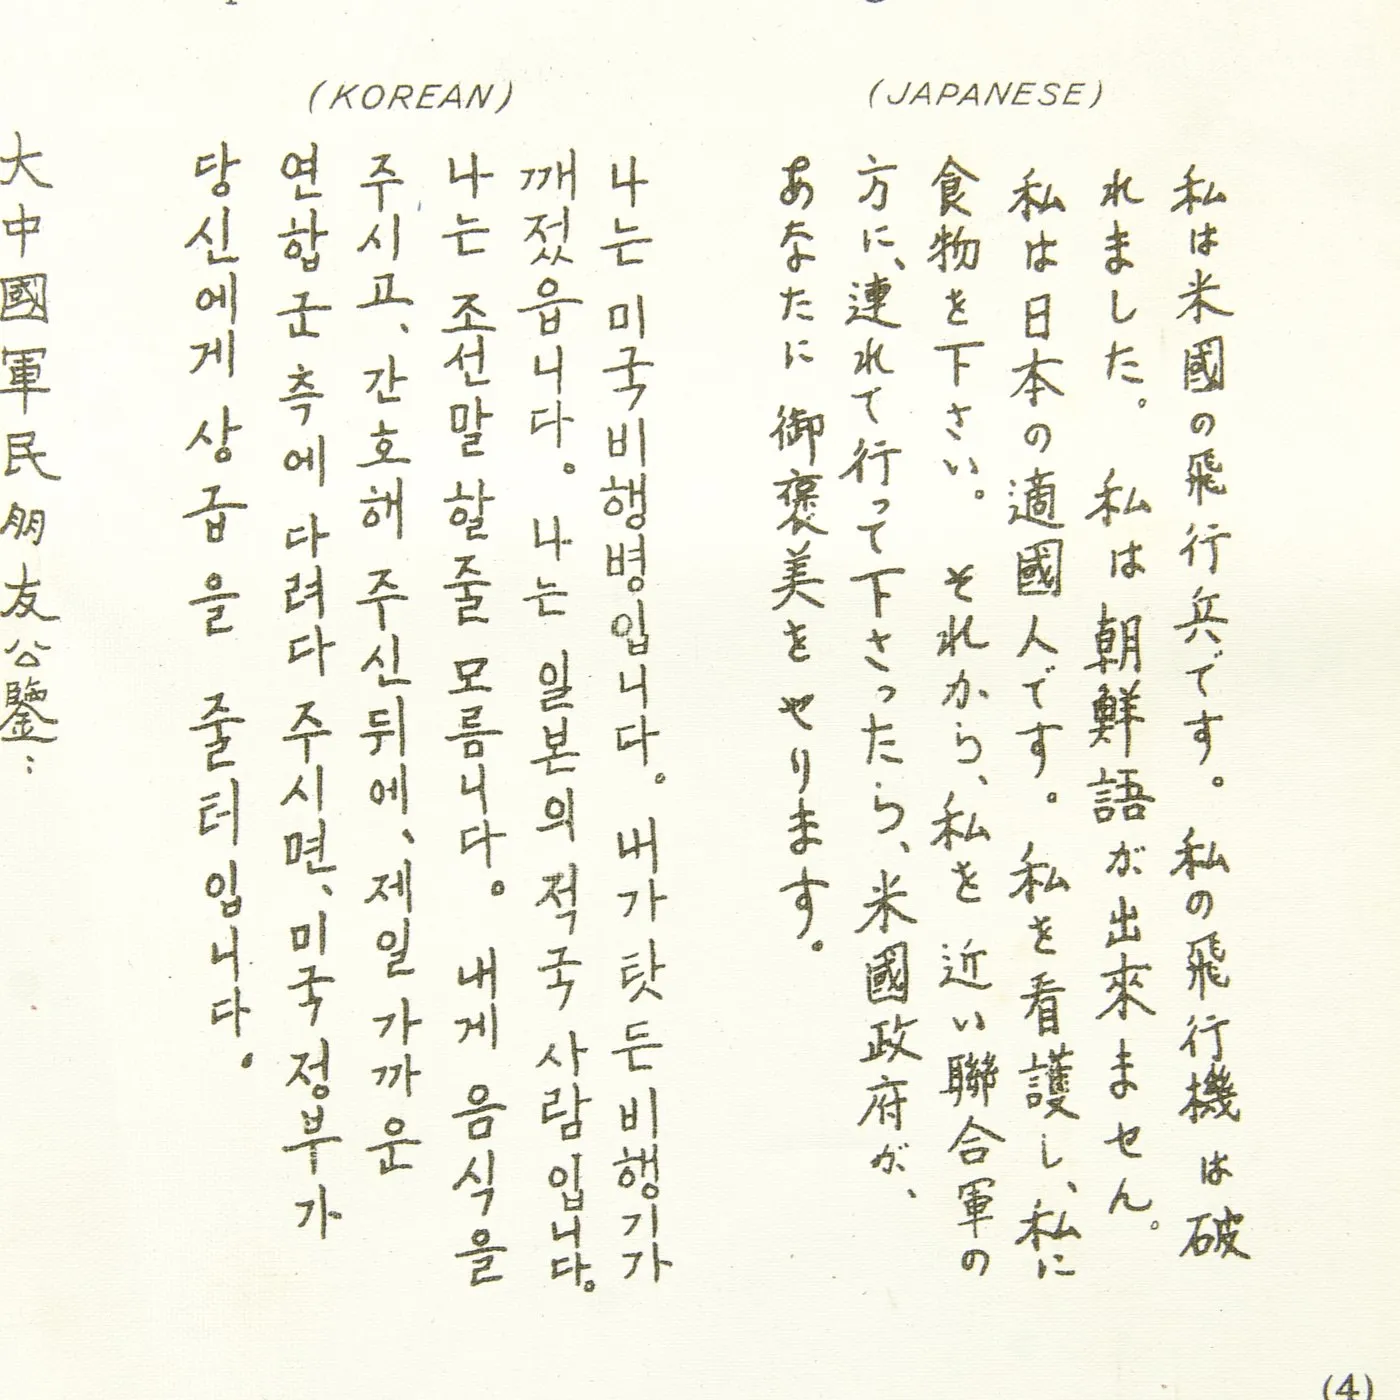 (JAPANESE)
私は米國の飛行兵です。私の飛行機は破
れました。私は朝鮮語が出來ません。
私は日本の適國人です。私を看護し、私に
食物を下さい。それから、私を近い聯合軍の
方に、連れて行って下さったら、米國政府が、
あなたに御褒美をやります。
(KOREAN)
나는 미국비행병입니다。 내가 탓든 비행기가
깨젔읍니다。 나는 일본의 적국 사람입니다。
나는 조선말 할줄 모름니다。 내게 음식을
주시고、간호해 주신뒤에、제일 가까운
연합군측에 다려다 주시면、미국 정부가
당신에게 상급을 줄터입니다。
大中國軍民朋友公鑒：
(4)